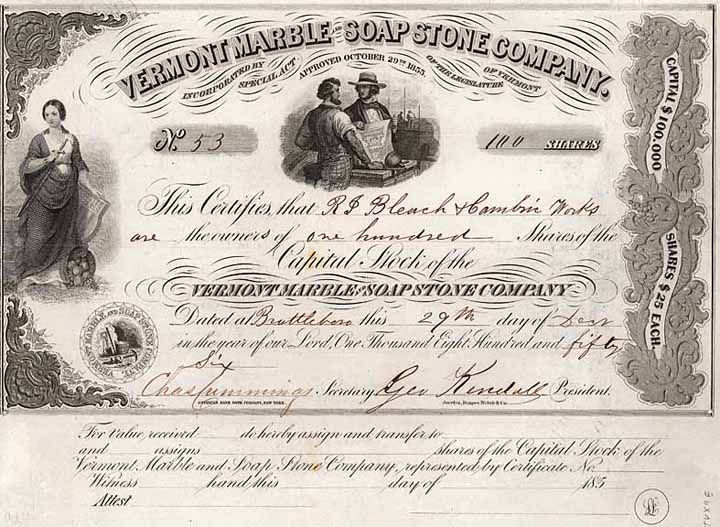 VERMONT MARBLE AND SOAP STONE COMPANY.
INCORPORATED BY SPECIAL ACT APPROVED OCTOBER 29TH 1855. OF THE LEGISLATURE OF VERMONT
CAPITAL $100,000
SHARES $25 EACH.
No. 53
100 SHARES
This Certifies, that R I Bleach & Cambric Works
are the owners of one hundred Shares of the
Capital Stock of the
VERMONT MARBLE AND SOAP STONE COMPANY
Dated at Brattleboro this 29th day of
in the year of our Lord, One Thousand Eight Hundred and fifty
Six
Chas Cummings Secretary. Geo Kendall President.
AMERICAN BANK NOTE COMPANY, NEW YORK.
Jocelyn, Draper, Welsh & Co.
VERMONT MARBLE AND SOAP STONE COMP.
For Value received do hereby assign and transfer to
and assigns shares of the Capital Stock of the
Vermont Marble and Soap Stone Company, represented by Certificate No.
Witness hand this day of 185
Attest